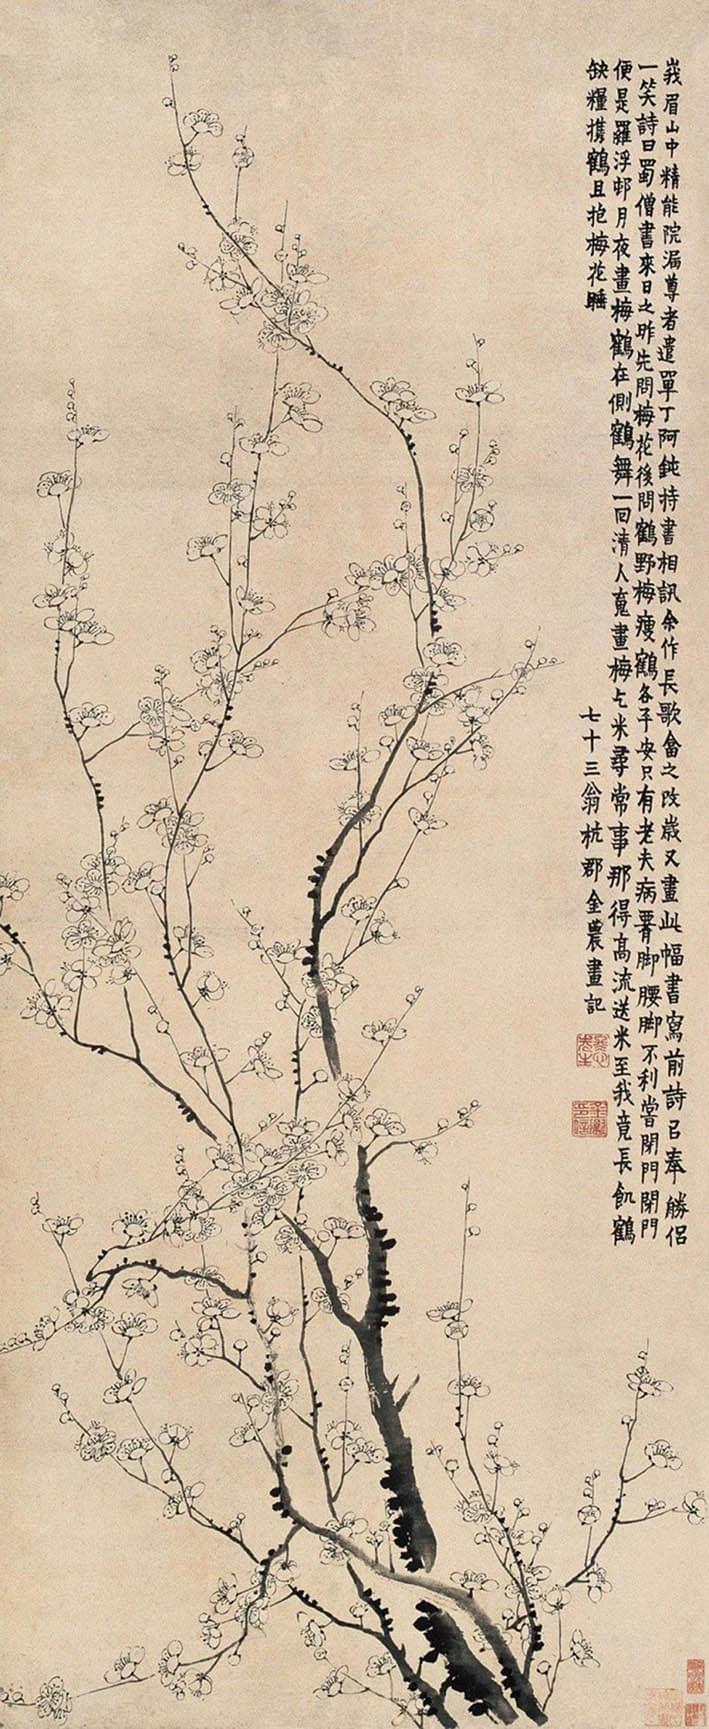 峩眉山中精能院漏尊者遣單丁阿鈍持書相訊余作長歌畣之改歲又畫此幅書寫前詩㠯奉勝侶
一笑詩曰蜀僧書來日之昨先問梅花後問鶴野梅瘦鶴各平安只有老夫病腰脚腰脚不利嘗閉門閉門
便是羅浮邨月夜畫梅鶴在側鶴舞一回清人䰟畫梅乞米尋常事那得高流送米至我竟長飢鶴
缺糧攜鶴且抱梅花睡
七十三翁杭郡金農畫記